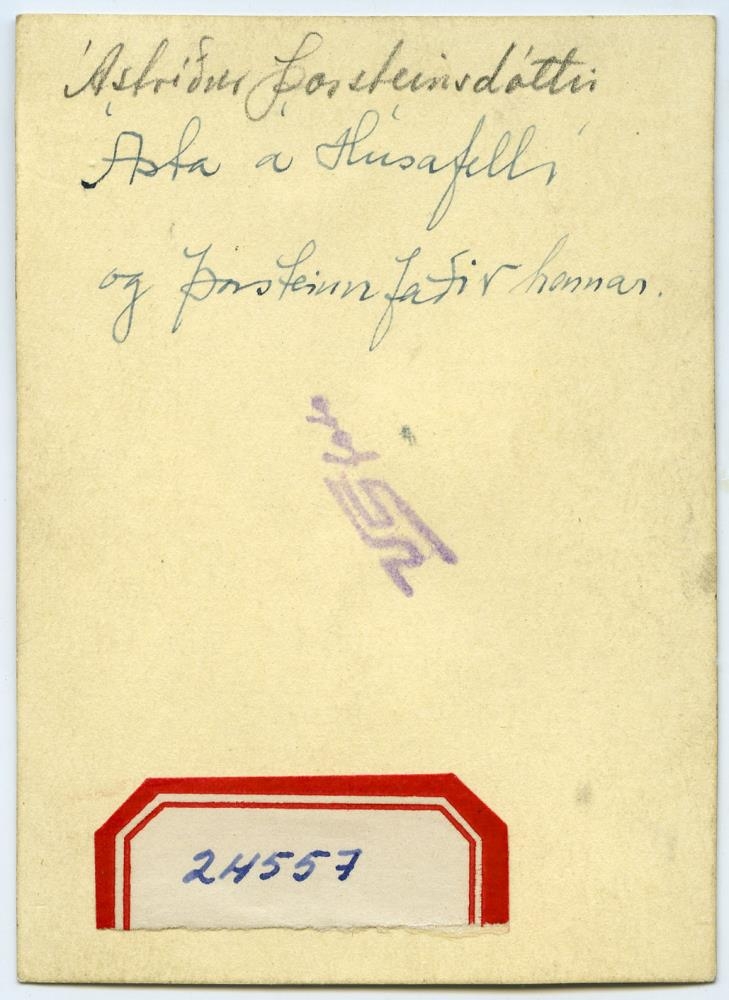 Ástríður Þorsteinsdóttir
Ásta á Húsafelli
og Þorsteinn faðir hennar.
24557